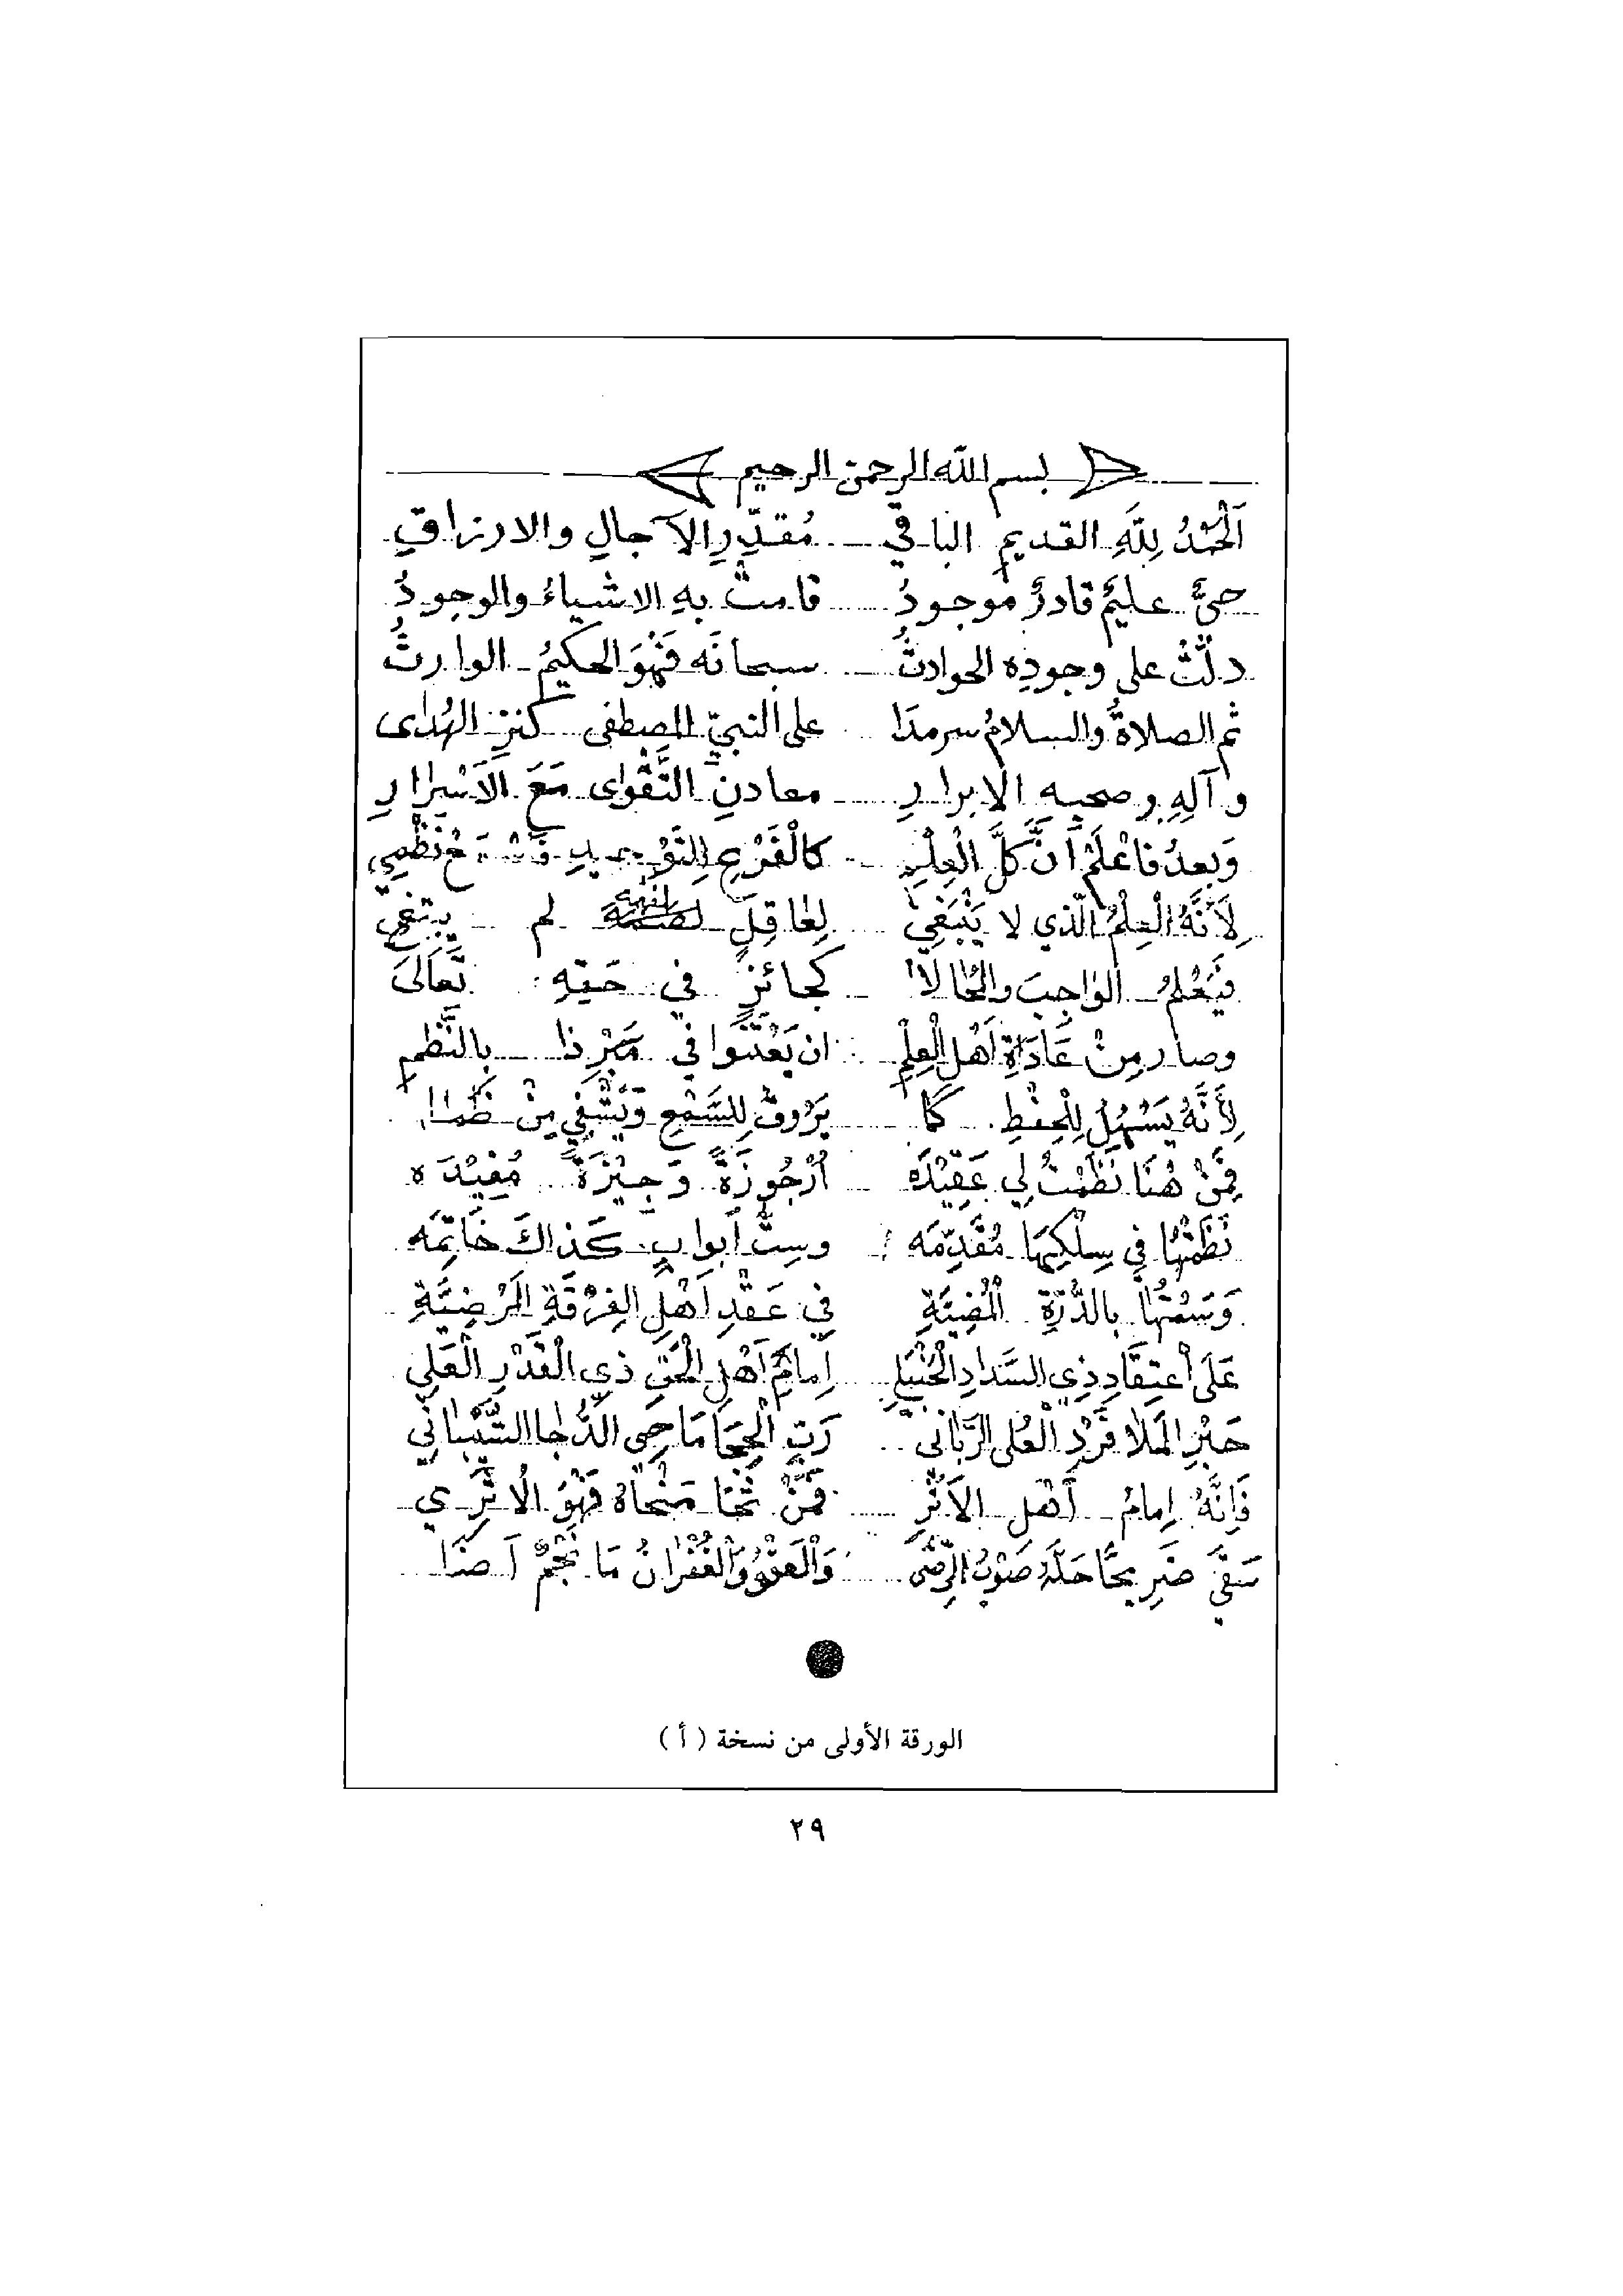 بسم الله الرحمن الرحيم
اَلْحَمْدُ لِلَّهِ القديمِ الباقي مُقدِّرِ الآجالِ والارزاقِ
حيٌّ عليمٌ قادرٌ موجودُ قامتْ بهِ الاشياءُ والوجودُ
دلَّتْ على وجودِه الحوادثُ سبحانَه فَهْوَ الحكيمُ الوارثُ
ثم الصلاةُ والسلامُ سرمدَا على النبيِّ المصطفى كنزِ الهُدٰى
وآلِهِ وصحبِهِ الابرارِ معادنِ التَّقْوٰى مَعَ الاَسْرارِ
وَبعدُ فاعْلَمْ اَنَّ كُلَّ الْعِلْمِ كالْفَرْعِ لِلتَّوْحِيدِ فَاسْمَعْ نَظْمِي
لِاَنَّهُ الْعِلْمُ الَّذي لا يَنْبَغِي لِعَاقِلٍ لفهمه لم يبتغي
فَيَعْلمُ الوَاجِبَ والْمُحَالَا كجائزٍ في حَقِّهِ تَعَالَى
وصار مِنْ عَادَةِ اَهْلِ الْعِلْمِ ان يَعْتَنُوا في سَبْرِ ذا بِالنَّظْمِ
لِأَنَّهُ يَسْهُلُ لِلْحِفْظِ كَمَا يَرُوقُ لِلسَّمْعِ وَيَشْفِي مِنْ ظَمَا
فَمِنْ هُنَا نَظَمْتُ لِي عَقِيْدَه اُرْجُوزَةً وَجِيْزَةً مُفِيْدَه
نَظَمْتُهَا فِي سِلْكِهَا مُقَدِّمَه وسِتُّ اَبوابٍ كَذاكَ خَاتِمَه
وَسَمْتُهَا بالدُّرَّةِ الْمُضِيَّةِ فِي عَقْدِ اَهْلِ الفِرْقَةِ الْمَرْضِيَّةِ
عَلَى اْعتِقَادِ ذِي السَّدادِ الْحَنْبَلِي اِمامِ اَهْلِ الْحَقِّ ذي الْقَدْرِ الْعَلِي
حَبْرِ المَلَا فَرْدِ الْعُلى الرَّبَّانى رَبِّ الْحِجَا مَاحِي الدُّجا الشَّيْبانِي
فَاِنَّهُ اِمامُ اَهْلِ الاَثَرِ فَمَنْ نَحَا مَنْحَاهُ فَهْوَ الْاثَرِي
سَقَى ضَرِيحًا حَلَّهُ صَوْبُ الرِّضَى وَالْعَفْوُ وَالْغُفْرانُ مَا نَجْمٌ اَضَا
الورقة الأولى من نسخة ( أ )
٢٩